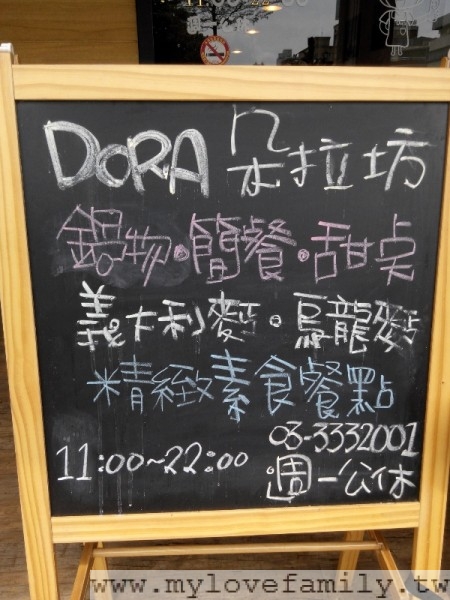 DORA 朵拉坊
鍋物·簡餐·甜点
義大利麵·烏龍麵
精緻素食餐點
03-3332001
11:00~22:00
週一公休
www.mylovefamily.tw